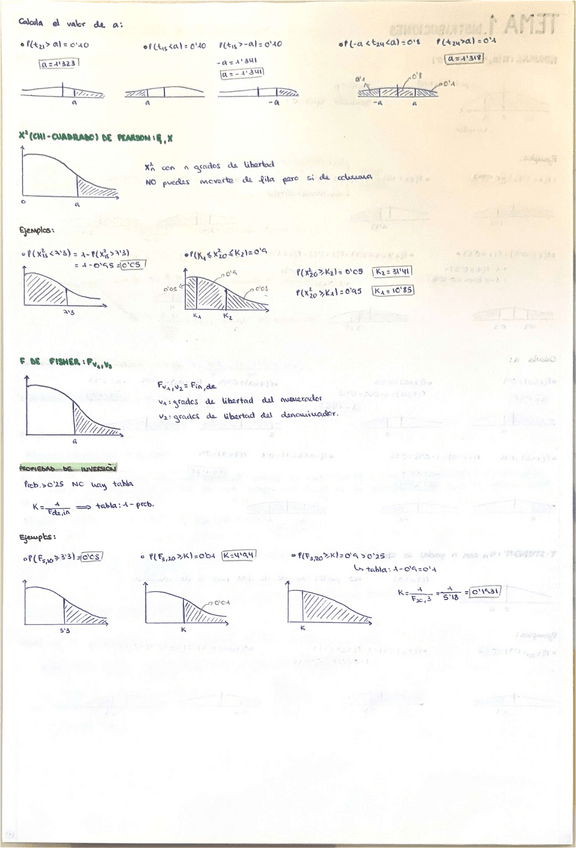 Calcula el valor de a:
• P(t₂₁ > a) = 0'10
a = 1'323
• P(t₁₅ < a) = 0'10 P(t₁₅ > -a) = 0'10
-a = 1'341
a = -1'341
• P(-a < t₂₄ < a) = 0'8 P(t₂₄ > a) = 0'1
a = 1'318
a
a
-a
0'1
0'8
0'1
-a a
X² (CHI-CUADRADO) DE PEARSON:
X²n con n grados de libertad
NO puedes moverte de fila pero si de columna
0 a
Ejemplos:
• P(X²₁₅ < 7'3) = 1 - P(X²₁₅ > 7'3)
= 1 - 0'95 = 0'05
7'3
• P(K₁ ≤ X²₂₀ ≤ K₂) = 0'9
0'05
0'9
0'05
K₁ K₂
P(X²₂₀ ≥ K₂) = 0'05 K₂ = 31'41
P(X²₂₀ ≥ K₁) = 0'95 K₁ = 10'85
F DE FISHER: Fv₁,v₂
Fv₁,v₂ = Fn, de
v₁: grados de libertad del numerador
v₂: grados de libertad del denominador.
a
PROPIEDAD DE INVERSIÓN
Prob. > 0'25 NO hay tabla
K = 1/Fde,n ⟹ tabla: 1 - prob.
Ejemplos:
• P(F₅,₁₀ ≥ 3'3) = 0'05
3'3
• P(F₅,₂₀ ≥ K) = 0'01 K = 4'94
0'01
K
• P(F₃,₂₀ ≥ K) = 0'9 > 0'25
↳ tabla: 1 - 0'9 = 0'1
K = 1/F₂₀,₃ = 1/5'18 = 0'1931
K